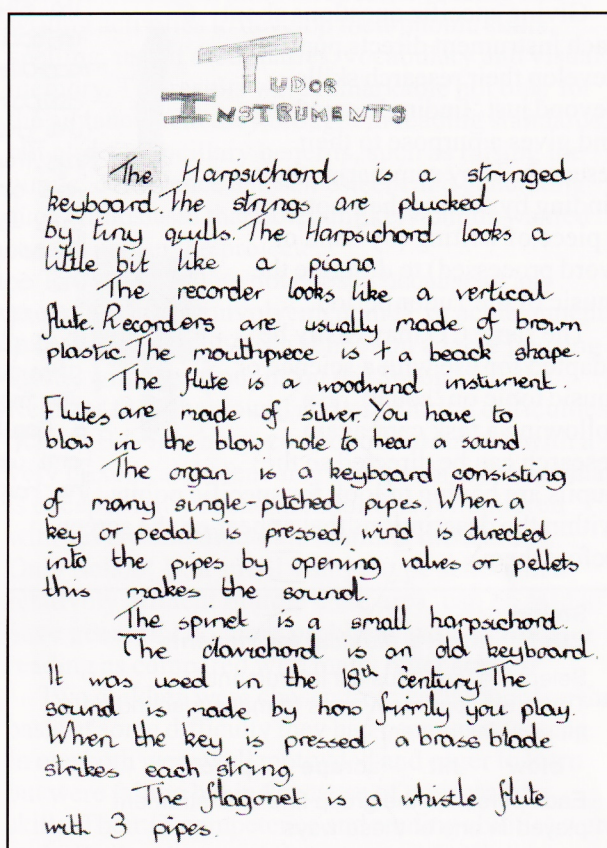 TUDOR
INSTRUMENTS
The Harpsichord is a stringed
keyboard. The strings are plucked
by tiny quills. The Harpsichord looks a
little bit like a piano
The recorder looks like a vertical
flute. Recorders are usually made of brown
plastic. The mouthpiece is + a beack shape.
The flute is a woodwind instument.
Flutes are made of silver. You have to
blow in the blow hole to hear a sound.
The organ is a keyboard consisting
of many single-pitched pipes. When a
key or pedal is pressed, wind is directed
into the pipes by opening valves or pellets
this makes the sound.
The spinet is a small harpsichord.
The clavichord is an old keyboard.
It was used in the 18th century. The
sound is made by how firmly you play.
When the key is pressed a brass blade
strikes each string.
The flagonet is a whistle flute
with 3 pipes.